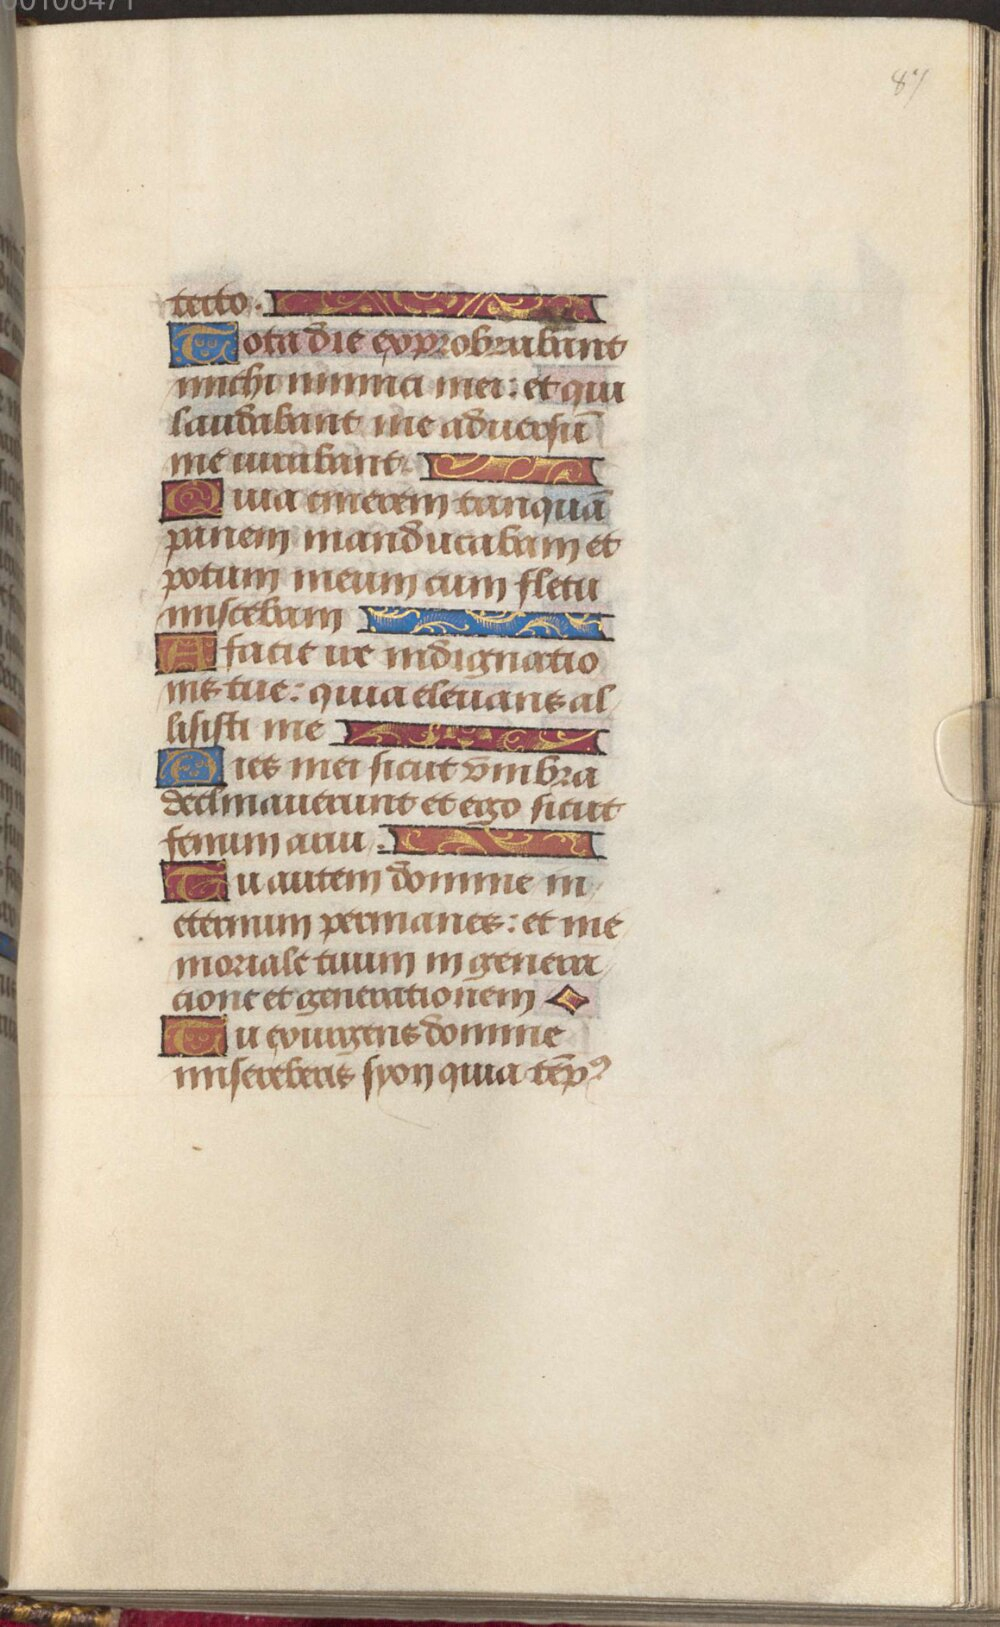 00108471
87
tecto.
Tota die exprobrabant
michi inimici mei: et qui
laudabant me aduersū
me iurabant.
Quia cinerem tanquā
panem manducabam et
potum meum cum fletu
miscebam
A facie ire indignatio
nis tue: quia eleuans al
lisisti me
Dies mei sicut vmbra
declinauerunt et ego sicut
fenum arui.
Tu autem domine in
eternum permanes: et me
moriale tuum in genera
cione et generationem
Tu exurgens domine
misereberis syon quia tēpꝰ